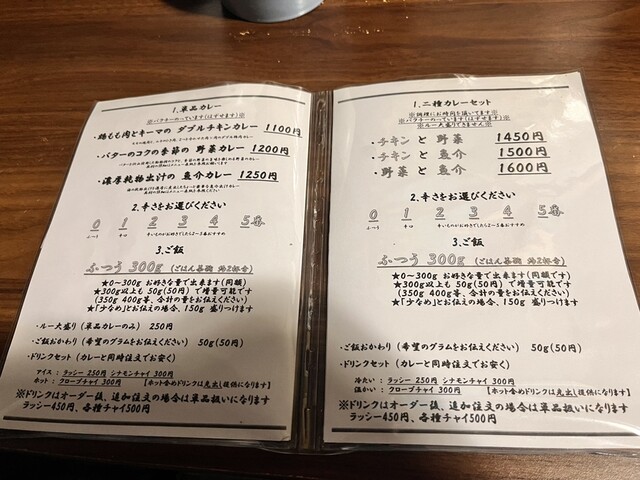 1.単品カレー
※バターのっています(はずせます)※
・鶏もも肉とキーマの ダブルチキンカレー 1100円
・バターのコクの季節の 野菜カレー 1200円
・濃厚乾物出汁の 魚介カレー 1250円
2.辛さをお選びください
0 1 2 3 4 5番
3.ご飯
ふつう 300g (ごはん茶碗 約2杯分)
★0～300g お好きな量で出来ます(同額)
★300g以上も 50g(50円) で増量可能です
(350g 400g等、合計の量をお伝えください)
★「少なめ」とお伝えの場合、150g 盛りつけます
・ルー大盛り (単品カレーのみ) 250円
・ご飯おかわり (希望のグラムをお伝えください) 50g(50円)
・ドリンクセット (カレーと同時注文でお安く)
アイス : ラッシー 250円 シナモンチャイ 300円
ホット : クローブチャイ 300円 【ホット含めドリンクは先出し提供になります】
※ドリンクはオーダー後、追加注文の場合は単品扱いになります
ラッシー450円、各種チャイ500円
1.二種カレーセット
※調理にお時間を頂いてます※
※バターのっています(はずせます)※
※ルー大盛りできません※
・チキン と 野菜 1450円
・チキン と 魚介 1500円
・野菜 と 魚介 1600円
2.辛さをお選びください
0 1 2 3 4 5番
3.ご飯
ふつう 300g (ごはん茶碗 約2杯分)
★0～300g お好きな量で出来ます(同額)
★300g以上も 50g(50円) で増量可能です
(350g 400g等、合計の量をお伝えください)
★「少なめ」とお伝えの場合、150g 盛りつけます
・ご飯おかわり (希望のグラムをお伝えください) 50g(50円)
・ドリンクセット (カレーと同時注文でお安く)
冷たい : ラッシー 250円 シナモンチャイ 300円
温かい : クローブチャイ 300円 【ホット含めドリンクは先出し提供になります】
※ドリンクはオーダー後、追加注文の場合は単品扱いになります
ラッシー450円、各種チャイ500円